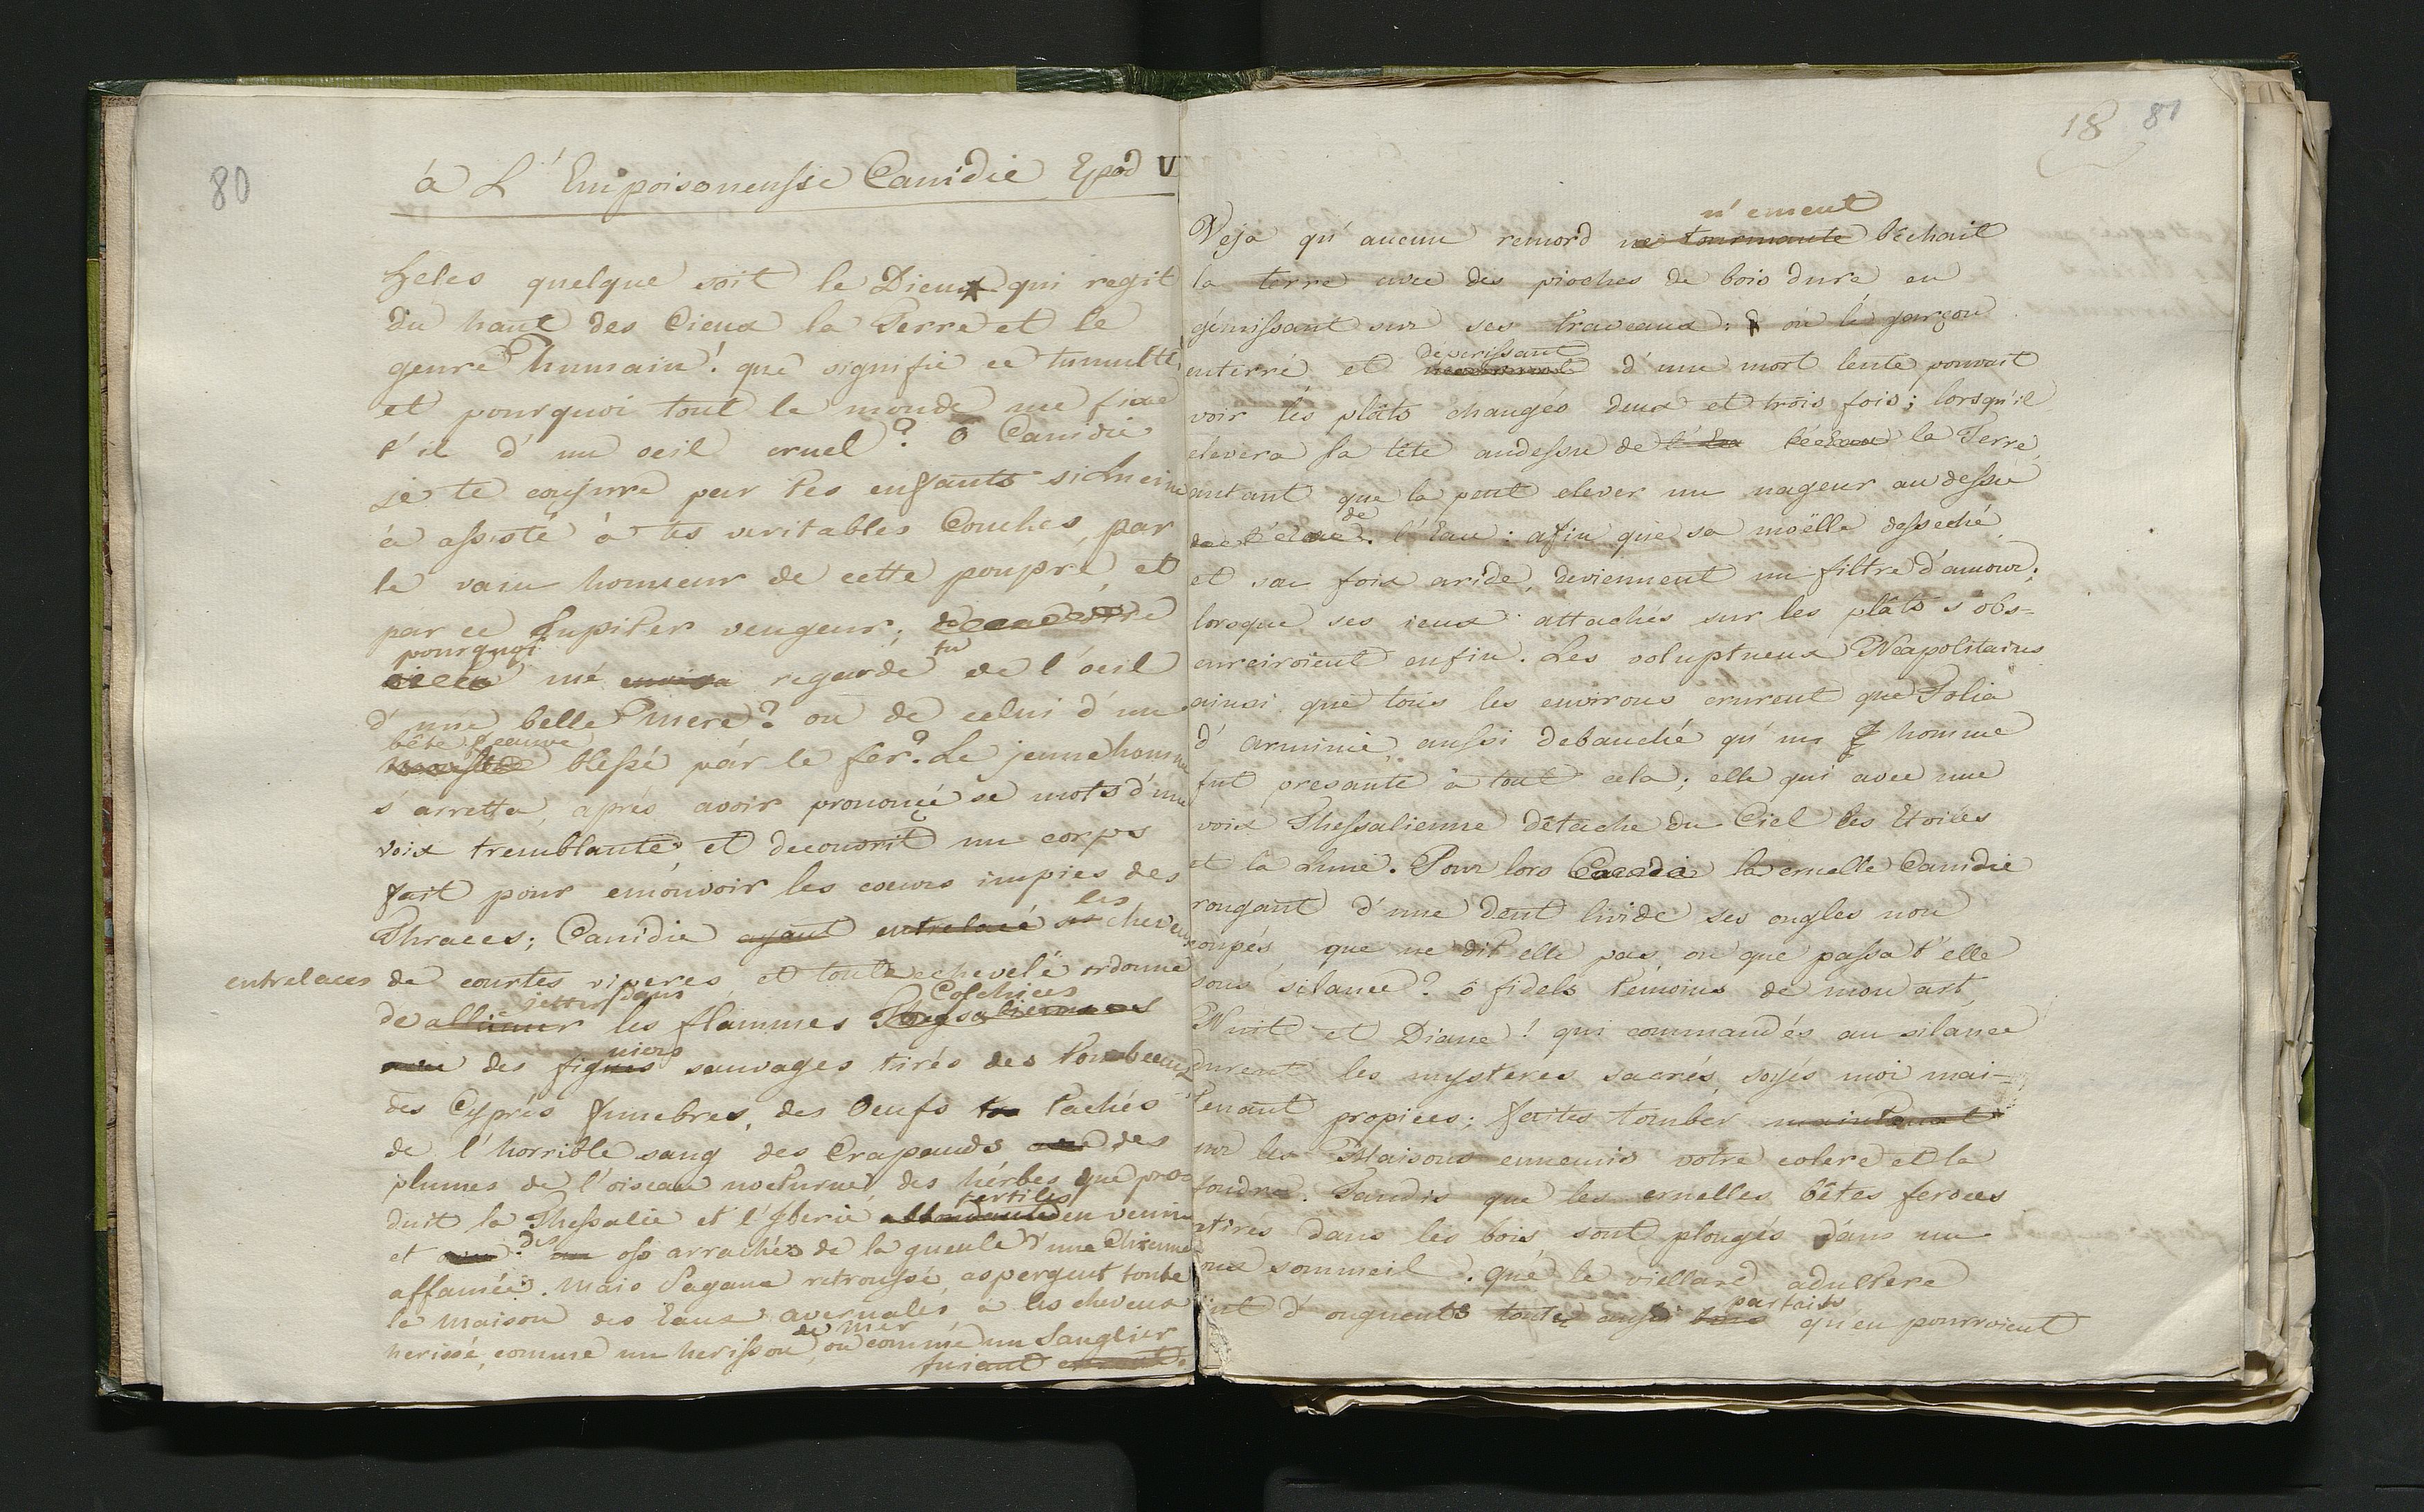 80
à L'Empoisoneusse Canidie Epod V
helas quelque soit le Dieux qui regit
du haut des Cieux la Terre et le
genre humain! que signifie ce tumulte
et pourquoi tout le monde me fixe
t'il d'un oeil cruel? ô Canidie
je te conjure par tes enfants si Lucine
à assisté à tes veritables Couches, par
le vain honneur de cette poupre, et
par ce Jupiter vengeur;
pourquoi me regarde tu de l'oeil
d'une belle mere? ou de celui d'une
bête feauve blessé pár le fer? Le jeune homme
s'arretta, aprés avoir prononcé se mots d'une
voix tremblante, et decouvrit un corps
fait pour emouvoir les coeurs impies des
Thraces; Canidie ayant entrelacé ses les cheveux
entrelaces de courtes viperes, et toute echevelé ordonne
de allumer jetter dans les flammes Thessaliennes Colchices
des figues niers sauvages tirés des tombeaux
des Cyprés funebres, des Oeufs tachés
de l'horrible sang des Crapauds des
plumes de l'oiseau nocturne, des hérbes que pro-
duit la Thessalie et l'Iberie abbondante fertiles en venin
et des oss arrachés de la gueule d'une Chienne
affamée. Mais Sagane retroussé, aspergent toute
la maison des Eaux avernales, à les cheveux
herissé, comme un herisson de mer, ou comme un Sanglier
fuiant
18 81
Veja qu'aucun remord ne tourmante n'emeut bêchait
la terre avec des pioches de bois dure en
gémissant sur ses traveaux; où le garçon
enterré et déperissant d'une mort lente pouvait
voir les plâts changés deux et trois fois; lorsqu'il
elevera sa tête audessu de la Terre,
autant que la peut elever un nageur au dessu
de l'Eau: afin que sa moëlle desseché,
et son foix aride, deviennent un filtre d'amour;
lorsque ses ieux attachés sur les plâts s'obs-
curciroient enfin. Les voluptueux Neapolitains
ainsi que tous les environs crurent que Folia
d'Arminie, aussi debauché qu'un homme
fut presante à tout cela; elle qui avec une
voix Thessalienne détache du Ciel les Etoiles
et la Lune. Pour lors la cruelle Canidie
rongant d'une dent livide ses ongles non
coupés, que ne dit elle pas, ou que passa t'elle
sous silance? ô fidels témoins de mon art,
Nuit et Diane! qui commandés au silance
durent les mysteres sacrés, soyés moi mai-
tenant propices; faites tomber maintenant
sur les Maisons ennemis votre colere et la
foudre. Tandis que les cruelles bêtes feroces
atirés dans les bois sont plongés dans un
sommeil. que le viellard adultere
oint d'onguents toute aussi bons parfaits qu'en pourroient